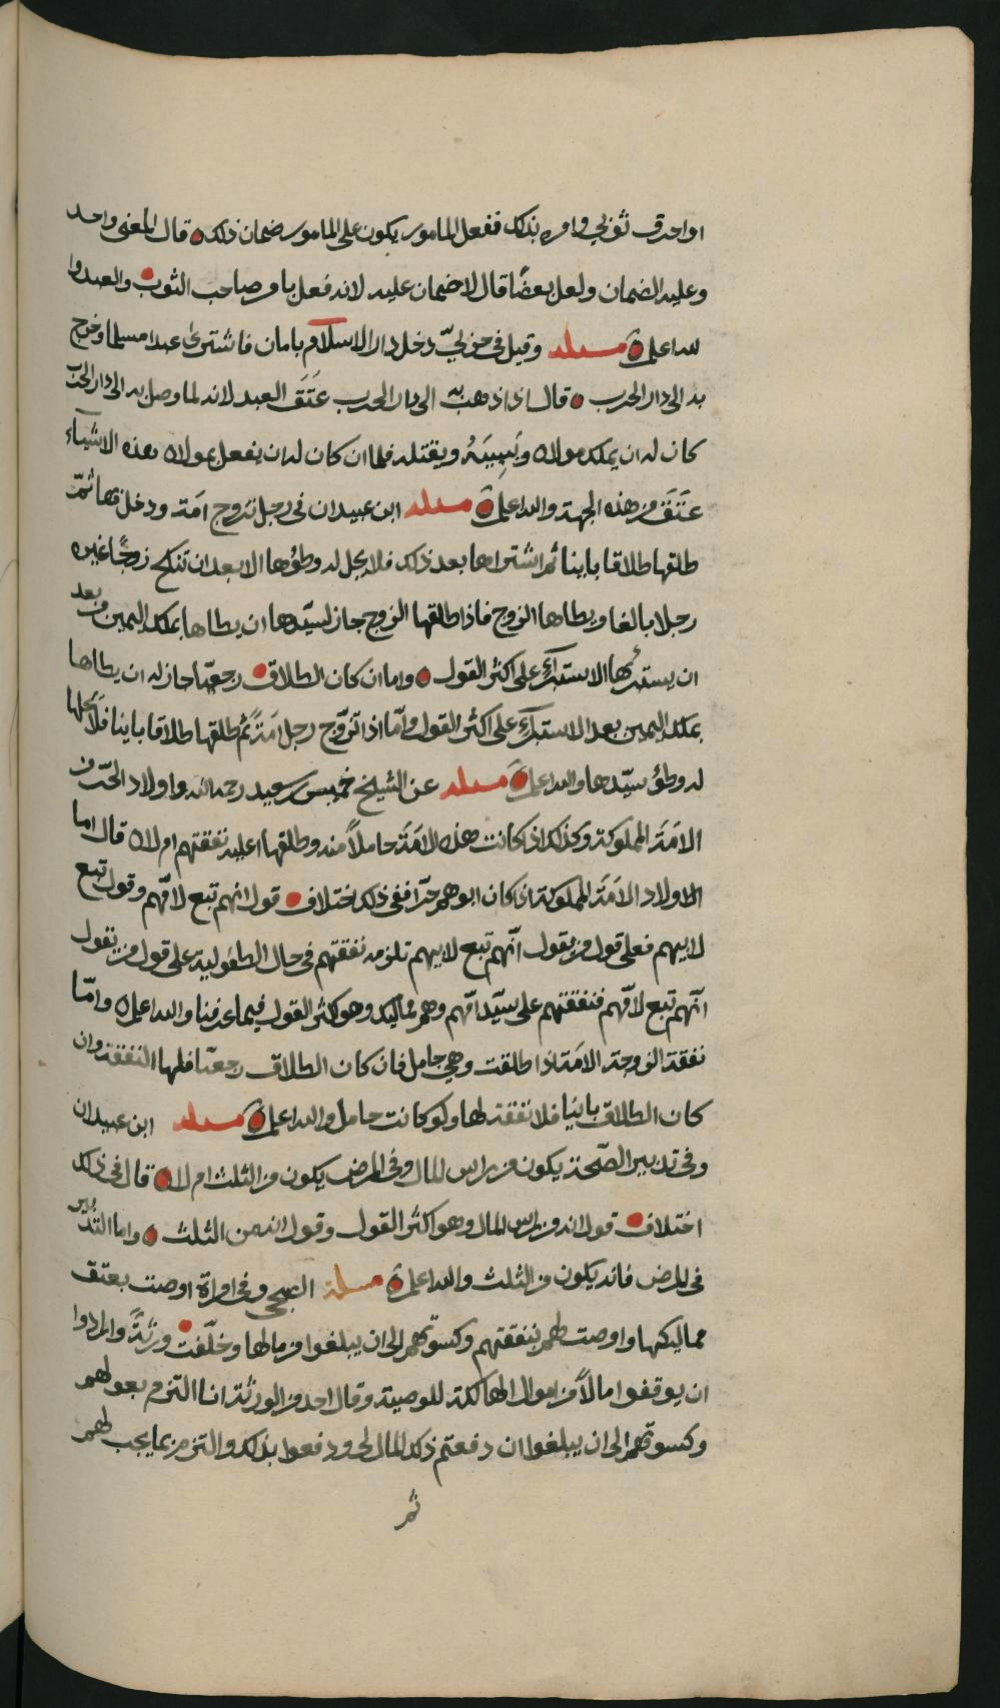 او احرق ثوبي وامره بذلك ففعل المامور يكون على المامور ضمان ذلك قال المعنى واحد
وعليه الضمان ولعل بعضًا قال لا ضمان عليه لانه فعل بامر صاحب الثوب والعبد و
الله اعلم مسئله وقيل في حربيّ دخل دار الاسلام بامان فاشترى عبدا مسلما وخرج
به الى دار الحرب قال اذا ذهب به الى دار الحرب عَتَقَ العبد لانه لما وصل به الى دار الحرب
كان له ان يملك مولاه ويَسبِيَهُ ويقتله فلما ان كان له ان يفعل بمولاه هذه الاشيآء
عَتَقَ من هذه الجهة والله اعلم مسئله ابن عبيدان في رجل تزوج امَة ودخل بها ثمّ
طلقها طلاقا باينا ثم اشتراها بعد ذلك فلا يحل له وطؤها الا بعد ان تنكح زوجًا غيره
رجلا بالغا ويطاها الزوج فاذا طلقها الزوج جاز لسيّدها ان يطاها بملك اليمين من بعد
ان يستبرئها الاستبرآء على اكثر القول واما ان كان الطلاق رجعيّا جاز له ان يطاها
بملك اليمين بعد الاستبرآء على اكثر القول وامّا اذا تزوّج رجل امَةً ثم طلقها طلاقا باينا فلا يحلها
له وطؤ سيّدها والله اعلم مسئله عن الشيخ خميس بن سعيد رحمه الله واولاد الحرّ من
الامَة المملوكة وكذلك اذا كانت هذه الامَة حاملاً منه وطلقها اعليه نفقتهم ام لا قال اما
الاولاد الامَة المملوكة اذا كان ابوهم حرّا ففي ذلك اختلاف قول انهم تبع لامّهم وقول تبع
لابيهم فعلى قول من يقول انّهم تبع لابيهم تلزمه نفقتهم في حال الطفولية على قول من يقول
انّهم تبع لامّهم فنفقتهم على سيّد امّهم وهم مماليك وهو اكثر القول فيما عرفنا والله اعلم وامّا
نفقة الزوجة الامَة اذا طلقت وهي حامل فان كان الطلاق رجعيّا فلها النفقة وان
كان الطلاق باينا فلا نفقة لها ولو كانت حامل والله اعلم مسئله ابن عبيدان
وفي تدبير الصّحة يكون من راس المال وفي المرض يكون من الثلث ام لا قال في ذلك
اختلاف قول انه من راس المال وهو اكثر القول وقول انه من الثلث واما التدبير
في المرض فانه يكون من الثلث والله اعلم مسئلة الصبحي وفي امراة اوصت بعتق
مماليكها واوصت لهم بنفقتهم وكسوتهم الى ان يبلغوا من مالها وخلّفت ورثةً وارادوا
ان يوقفوا مالاً من اموال الهالكة للوصية وقال احد من الورثة انا التزم بعولهم
وكسوتهم الى ان يبلغوا ان دفعتم ذلك المال لي ودفعوا بذلك والتزم بما يجب لهم
ثم